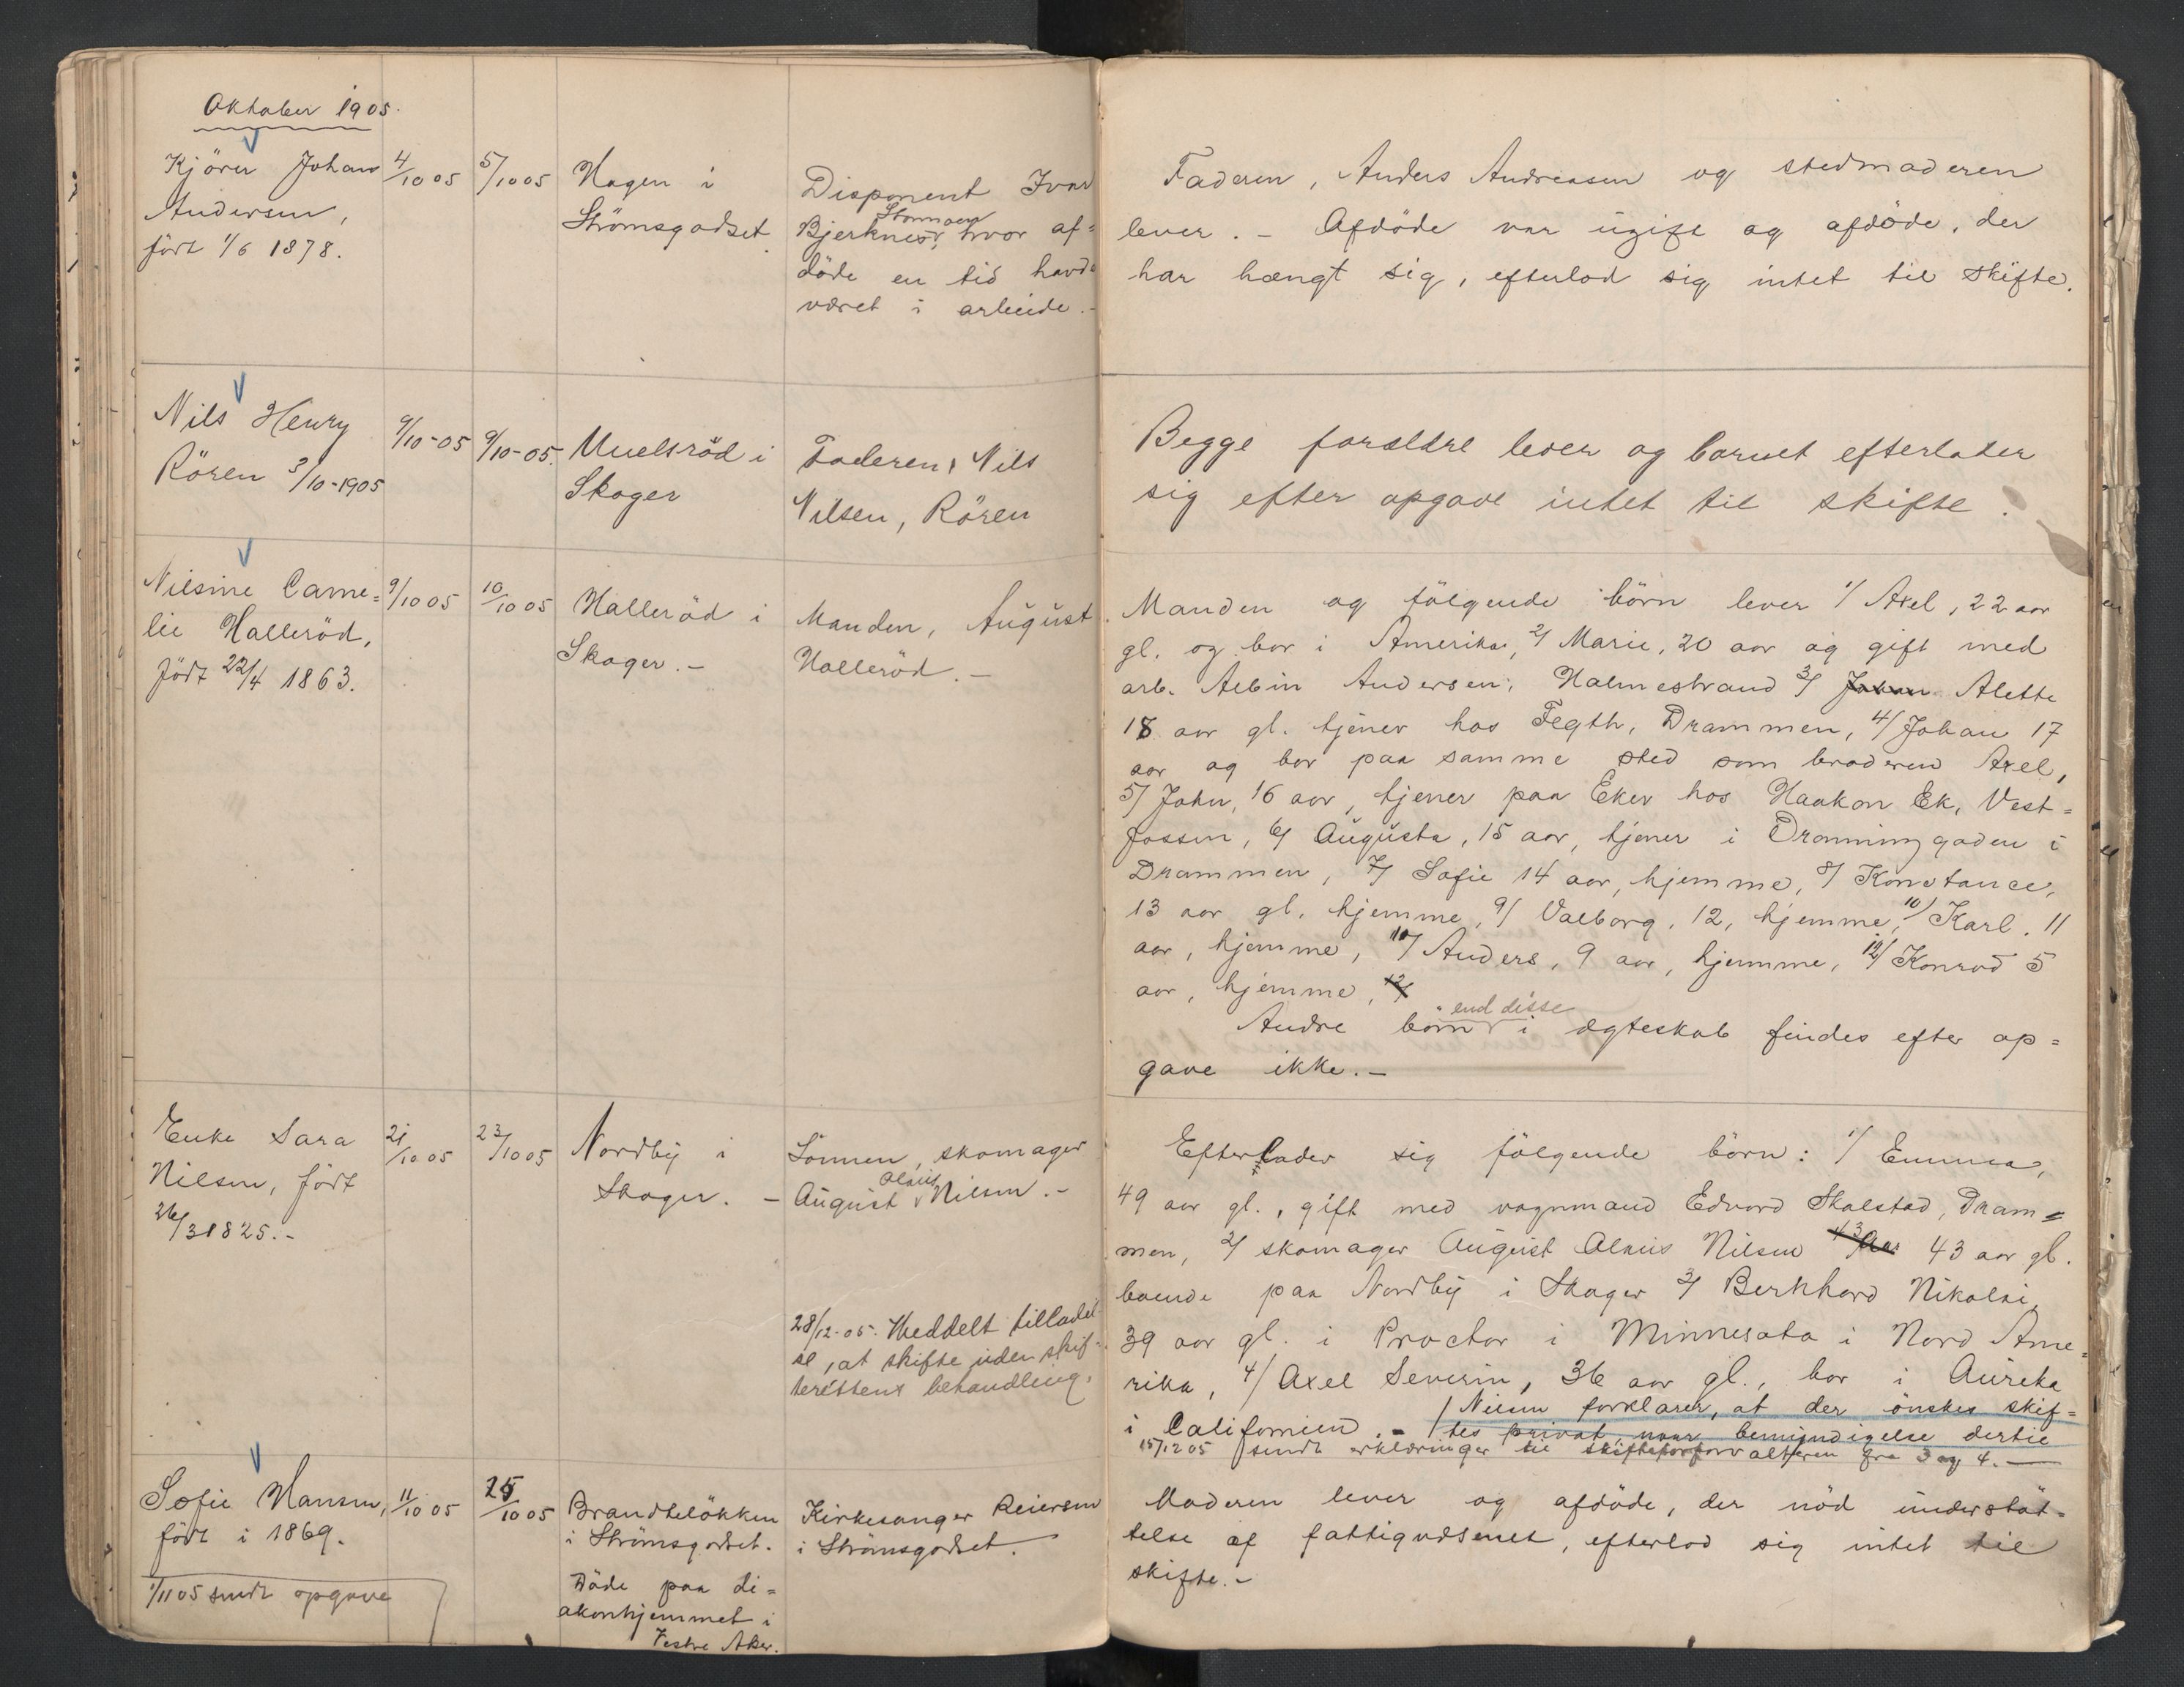 Oktober 1905.
Kjörer Johan
Andersen,
födt 1/6 1878.
4/10 05
5/10 05
Hagen i
Strömsgodset.
Disponent Ivar
Bjerknes, Stormoen hvor af=
döde en tid havde
været i arbeide.-
Faderen, Anders Andreasen og stedmoderen
lever. - Afdöde var ugift og afdöde, der
har hængt sig, efterlod sig intet til skifte.
Nils Henry
Rören 3/10-1905
9/10-05
9/10-05.
i
Skoger
Faderen, Nils
Nilsen, Rören
Begge forældre lever og barnet efterlater
sig efter opgave intet til skifte.
Nilsine Came=
lie Halleröd,
Födt 22/4 1863.
9/10 05
10/10 05
Halleröd i
Skoger.-
Manden, August
Halleröd.-
Manden og fölgende börn lever 1/ Axel, 22 aar
gl. og bor i Amerika, 2/ Marie, 20 aar og gift med
arb. Albin Andersen, Holmestrand 3/ Johan Alette
18 aar gl. tjener hos Fegth, Drammen, 4/ Johan 17
aar og bor paa samme sted som broderen Axel,
5/ John, 16 aar, tjener paa Eker hos Haakon Ek, Vest=
fossen, 6/ Augusta, 15 aar, tjener i Dronninggaden i
Drammen, 7/ Sofie 14 aar, hjemme, 8/ Konstance,
13 aar gl. hjemme, 9/ Valborg, 12, hjemme, 10/ Karl. 11
aar, hjemme, 11/ Anders, 9 aar, hjemme, 12/ Konrad 5
aar, hjemme, 12/
Andre börn end disse i ægteskab findes efter op=
gave ikke.-
Enke Sara
Nilsen, födt
26/3 1825.-
21/10 05
23/10 05
Nordby i
Skoger. -
Sönnen, skomager
August Olaus Nilsen.-
28/12-05. Meddelt tilladel-
se, at skifte uden skif-
terettens behandling.
Efterlader sig fölgende börn: 1/ Emma,
49 aar gl., gift med vognmand Edvard Skalstad, Dram=
men, 2/ skomager August Olaus Nilsen 43 aar 43 aar gl.
boende paa Nordby i Skoger 3/ Berkhard Nikolai,
39 aar gl. i Proctor i Minnesota i Nord Ame=
rika, 4/ Axel Severin, 36 aar gl., bor i Aureka
i Californien.- / Nilsen forklarer, at der önskes skif=
tes privat, naar bemyndigelse dertil
15/12 05 sendt erklæringer til skifteforvalteren fra 3 og 4.-
Sofie Hansen,
födt i 1869.
1/11 05 sendt opgave
11/10 05
25/10 05
Brandtelökken
i Strömsgodset.
Döde paa di=
akonhjemmet i
Vestre Aker.
Kirkesanger Reiersen
i Strömsgodset.
Moderen lever og afdöde, der nöd understöt=
telse af fattigvæsenet, efterlod sig intet til
skifte.-